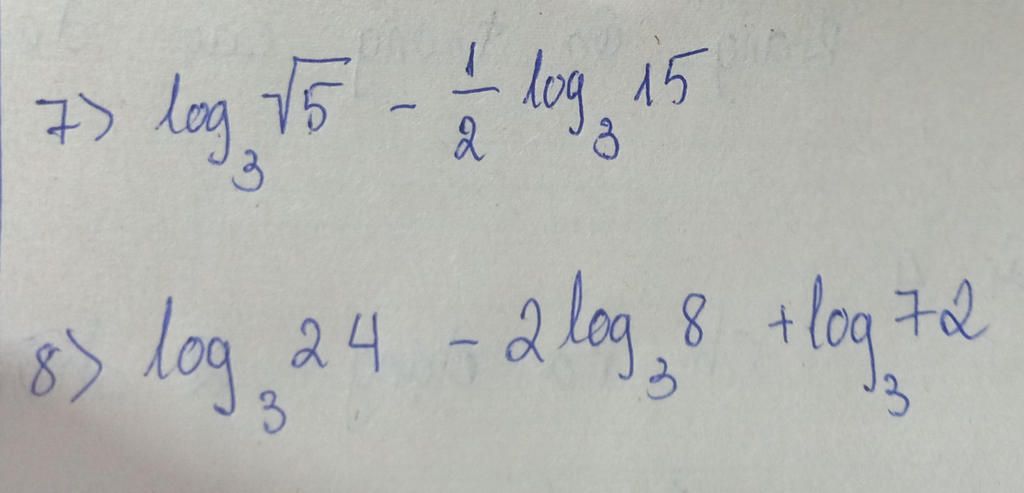 7> log₃ √5 - 1/2 log₃ 15
8> log₃ 24 - 2 log₃ 8 + log₃ 72